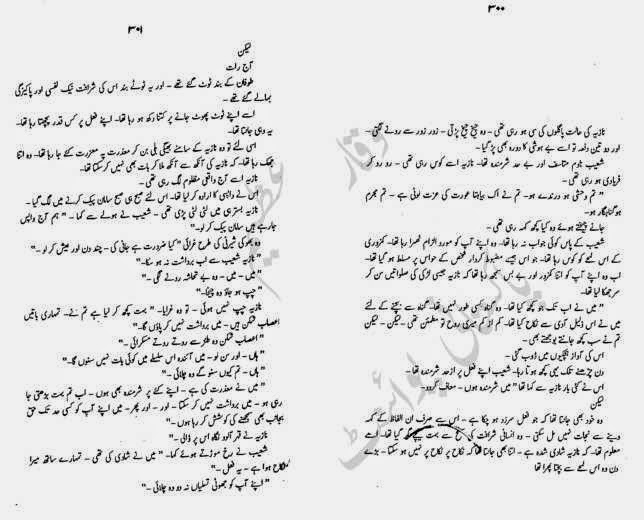 ۳۰۰
نازیہ کی حالت پاگلوں کی سی ہو رہی تھی ۔ وہ چیخ چیخ پڑتی ۔ زور زور سے رونے لگتی ۔
اور دو تین دفعہ تو اسے بے ہوشی کا دورہ بھی پڑ گیا ۔
شعیب نادم متاسف اور بے حد شرمندہ تھا ۔ نازیہ اسے کوس رہی تھی ۔ رو رو کر
فریادی ہو رہی تھی ۔
" تم وحشی ہو درندے ہو ۔ تم نے اک بیاہتا عورت کی عزت لوٹی ہے ۔ تم مجرم
ہو گناہگار ہو ۔
جانے چیختے ہوئے وہ کیا کچھ کہہ رہی تھی ۔
شعیب کے پاس کوئی جواب نہ رہا تھا ۔ وہ اپنے آپ کو مورد الزام ٹھہرا رہا تھا ۔ کمزوری
کے اس لمحے کو کوس رہا تھا ۔ جو اس جیسے مضبوط کردار شخص کے حواس پر مسلط ہو گیا تھا ۔
اب وہ اپنے آپ کو اتنا کمزور اور بے بس سمجھ رہا تھا کہ نازیہ جیسی لڑکی کی صلواتیں سن کر
سر جھکا لیا تھا ۔
" میں نے اب تک جو کچھ کیا تھا ۔ وہ گناہ کسی طور نہیں تھا ۔ گناہ سے بچنے کے لئے
میں نے اس ذلیل آدمی سے نکاح کیا تھا ۔ کم از کم میری روح تو مطمئن تھی ۔ لیکن ۔ لیکن
تم نے سب کچھ جانتے بوجھتے بھی ۔
اس کی آواز ہچکیوں میں ڈوب گئی ۔
دن چڑھنے تک یہی کچھ ہوتا رہا ۔ شعیب اپنے فعل پر ازحد شرمندہ تھا ۔
اس نے کئی بار نازیہ سے کہا تھا " میں شرمندہ ہوں ۔ معاف کر دو ۔
لیکن
وہ خود بھی جانتا تھا کہ جو فعل سرزد ہو چکا ہے ۔ اس سے صرف ان الفاظ کے کہہ
دینے سے نجات نہیں مل سکتی ۔ وہ انسانی شرافت کی سطح سے بہت نیچے گر گیا تھا ۔ اسے
معلوم تھا ۔ کہ نازیہ شادی شدہ ہے ۔ اتنا بھی جانتا تھا کہ نکاح پر نکاح نہیں ہو سکتا ۔ بڑے
دن وہ اس لمحے سے بچتا پھرا تھا
۳۰۱
لیکن
آج رات
طوفان کے بند ٹوٹ گئے تھے ۔ اور یہ ٹوٹے بند اس کی شرافت نیک نفسی اور پاکیزگی
بہا لے گئے تھے ۔
اسے اپنے ٹوٹ پھوٹ جانے پر کتنا دکھ ہو رہا تھا ۔ اپنے فعل پر کس قدر پچھتا رہا تھا ۔
یہ وہی جانتا تھا ۔
اسی لئے تو وہ نازیہ کے سامنے بھیگی بلی بن کر معذرت پہ معذرت کئے جا رہا تھا ۔ وہ اتنا
جھک رہا تھا ۔ کہ نازیہ کی آنکھ سے آنکھ ملا کر بات بھی نہیں کر سکتا تھا ۔
نازیہ اسے آج واقعی مظلوم لگ رہی تھی ۔
اس نے واپسی کا ارادہ کر لیا تھا ۔ اس لئے صبح ہی صبح سامان پیک کرنے میں لگ گیا ۔
نازیہ بستر ہی میں لٹی لٹی پڑی تھی ۔ شعیب نے ہولے سے کہا ۔ " ہم آج واپس
جا رہے ہیں سامان پیک کر لو ۔"
وہ بھوکی شیرنی کی طرح غرائی " کیا ضرورت ہے جانے کی ۔ چند دن اور عیش کر لو ۔"
" نازیہ شعیب سے اب برداشت نہ ہو سکا ۔"
" میں ۔ میں ۔ وہ بے تحاشہ رونے لگی ۔"
" چپ ہو جاؤ وہ چیخا ۔"
نازیہ چپ نہیں ہوئی ۔ تو وہ غرایا ۔ " بہت کچھ کر لیا ہے تم نے ۔ تمہاری باتیں
اعصاب شکن ہیں ۔ میں برداشت نہیں کر پاؤں گا ۔"
" اعصاب شکن وہ طنز سے روتے روتے مسکرائی ۔"
" ہاں ۔ اور سن لو ۔ میں آئندہ اس سلسلے میں کوئی بات نہیں سنوں گا ۔"
" ہاں ۔ تم کیوں سنو گے وہ چلائی ۔"
" میں نے معذرت کی ہے ۔ اپنے کئے پر شرمندہ بھی ہوں ۔ اب تم بہت بڑھتی جا
رہی ہو ۔ میں برداشت نہیں کر سکتا ۔ اور ۔ اور پھر ۔ میں اپنے آپ کو کسی حد تک حق
بجانب بھی سمجھنے کی کوشش کر رہا ہوں ۔"
نازیہ نے قہر آلود نگاہ اس پر ڈالی ۔"
شعیب نے رخ موڑتے ہوئے کہا ۔ " میں نے شادی کی تھی ۔ تمہارے ساتھ میرا
نکاح ہوا ہے ۔ یہ فعل ۔"
" اپنے آپ کو جھوٹی تسلیاں نہ دو وہ چلائی ۔"
پاکستانی پوائنٹ